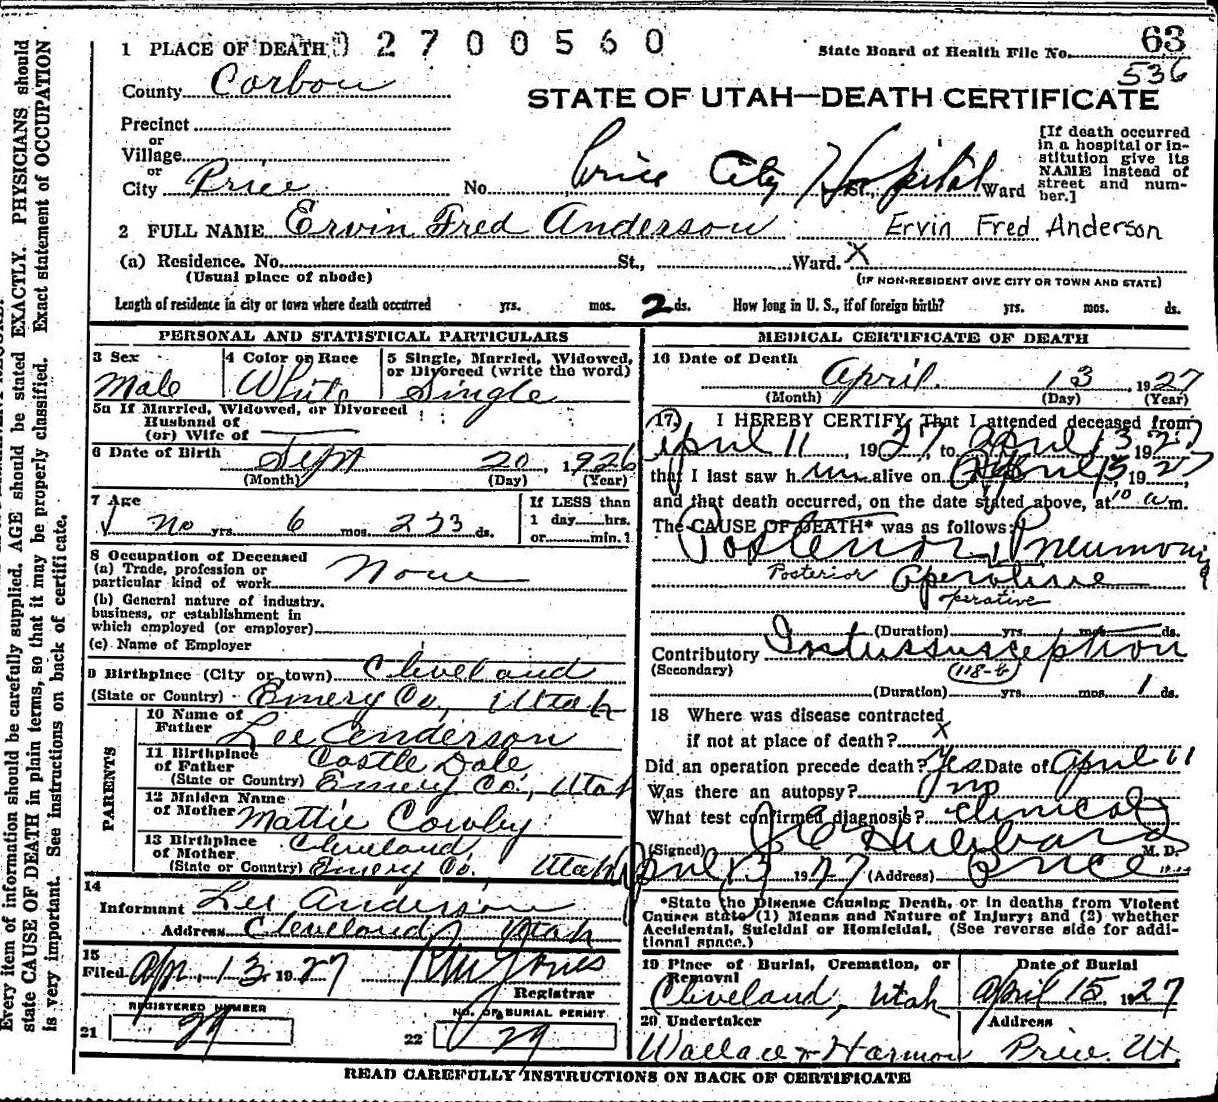 1 PLACE OF DEATH 0 2 7 0 0 5 6 0
State Board of Health File No. 63
536
County Carbon
STATE OF UTAH—DEATH CERTIFICATE
Precinct
or
Village
or
City Price No. Price City Hospital St., Ward
[If death occurred in a hospital or in-
stitution give its
NAME instead of
street and num-
ber.]
2 FULL NAME Ervin Fred Anderson Ervin Fred Anderson
(a) Residence. No. St., Ward. X
(Usual place of abode) (IF NON-RESIDENT GIVE CITY OR TOWN AND STATE)
Length of residence in city or town where death occurred yrs. mos. 2 ds. How long in U. S., if of foreign birth? yrs. mos. ds.
PERSONAL AND STATISTICAL PARTICULARS
3 Sex Male
4 Color or Race White
5 Single, Married, Widowed,
or Divorced (write the word)
Single
5a If Married, Widowed, or Divorced
Husband of
(or) Wife of
6 Date of Birth Sept 20, 1926
(Month) (Day) (Year)
7 Age
no yrs. 6 mos. 23 ds.
If LESS than
1 day hrs.
or min.
8 Occupation of Deceased
(a) Trade, profession or
particular kind of work None
(b) General nature of industry,
business, or establishment in
which employed (or employer)
(c) Name of Employer
9 Birthplace (City or town) Cleveland
(State or Country) Emery Co, Utah
PARENTS
10 Name of
Father Lee Anderson
11 Birthplace
of Father Castle Dale
(State or Country) Emery Co, Utah
12 Maiden Name
of Mother Mattie Cowley
13 Birthplace
of Mother Cleveland
(State or Country) Emery Co, Utah
14
Informant Lee Anderson
Address Cleveland, Utah
15
Filed Apr. 13 1927 Registrar
REGISTERED NUMBER
21 29
NO. OF BURIAL PERMIT
22 29
MEDICAL CERTIFICATE OF DEATH
16 Date of Death
April 13, 1927
(Month) (Day) (Year)
17 I HEREBY CERTIFY, That I attended deceased from
April 11, 1927, to April 13 1927
that I last saw him alive on April 13, 1927,
and that death occurred, on the date stated above, at 10 a m.
The CAUSE OF DEATH* was as follows:
Posterior Pneumonia
Posterior Operative
operative
(Duration) yrs. mos. ds.
Contributory Intussusception
(Secondary) 118-b
(Duration) yrs. mos. 1 ds.
18 Where was disease contracted
if not at place of death? X
Did an operation precede death? Yes. Date of April 11
Was there an autopsy? no
What test confirmed diagnosis? Clinical
(Signed) M. D.
April 13 1927 (Address) Price
*State the Disease Causing Death, or in deaths from Violent
Causes state (1) Means and Nature of Injury; and (2) whether
Accidental, Suicidal or Homicidal. (See reverse side for addi-
tional space.)
19 Place of Burial, Cremation, or
Removal
Cleveland, Utah
Date of Burial
April 15, 1927
20 Undertaker
Wallace & Harmon
Address
Price. Ut.
READ CAREFULLY INSTRUCTIONS ON BACK OF CERTIFICATE
Every item of information should be carefully supplied. AGE should be stated EXACTLY. PHYSICIANS should
state CAUSE OF DEATH in plain terms, so that it may be properly classified. Exact statement of OCCUPATION
is very important. See instructions on back of certificate.